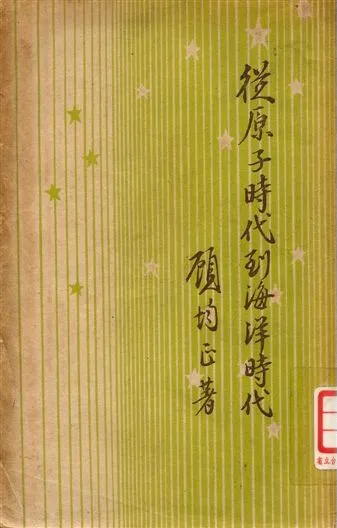 從原子時代到海洋時代
顧均正著
省立台